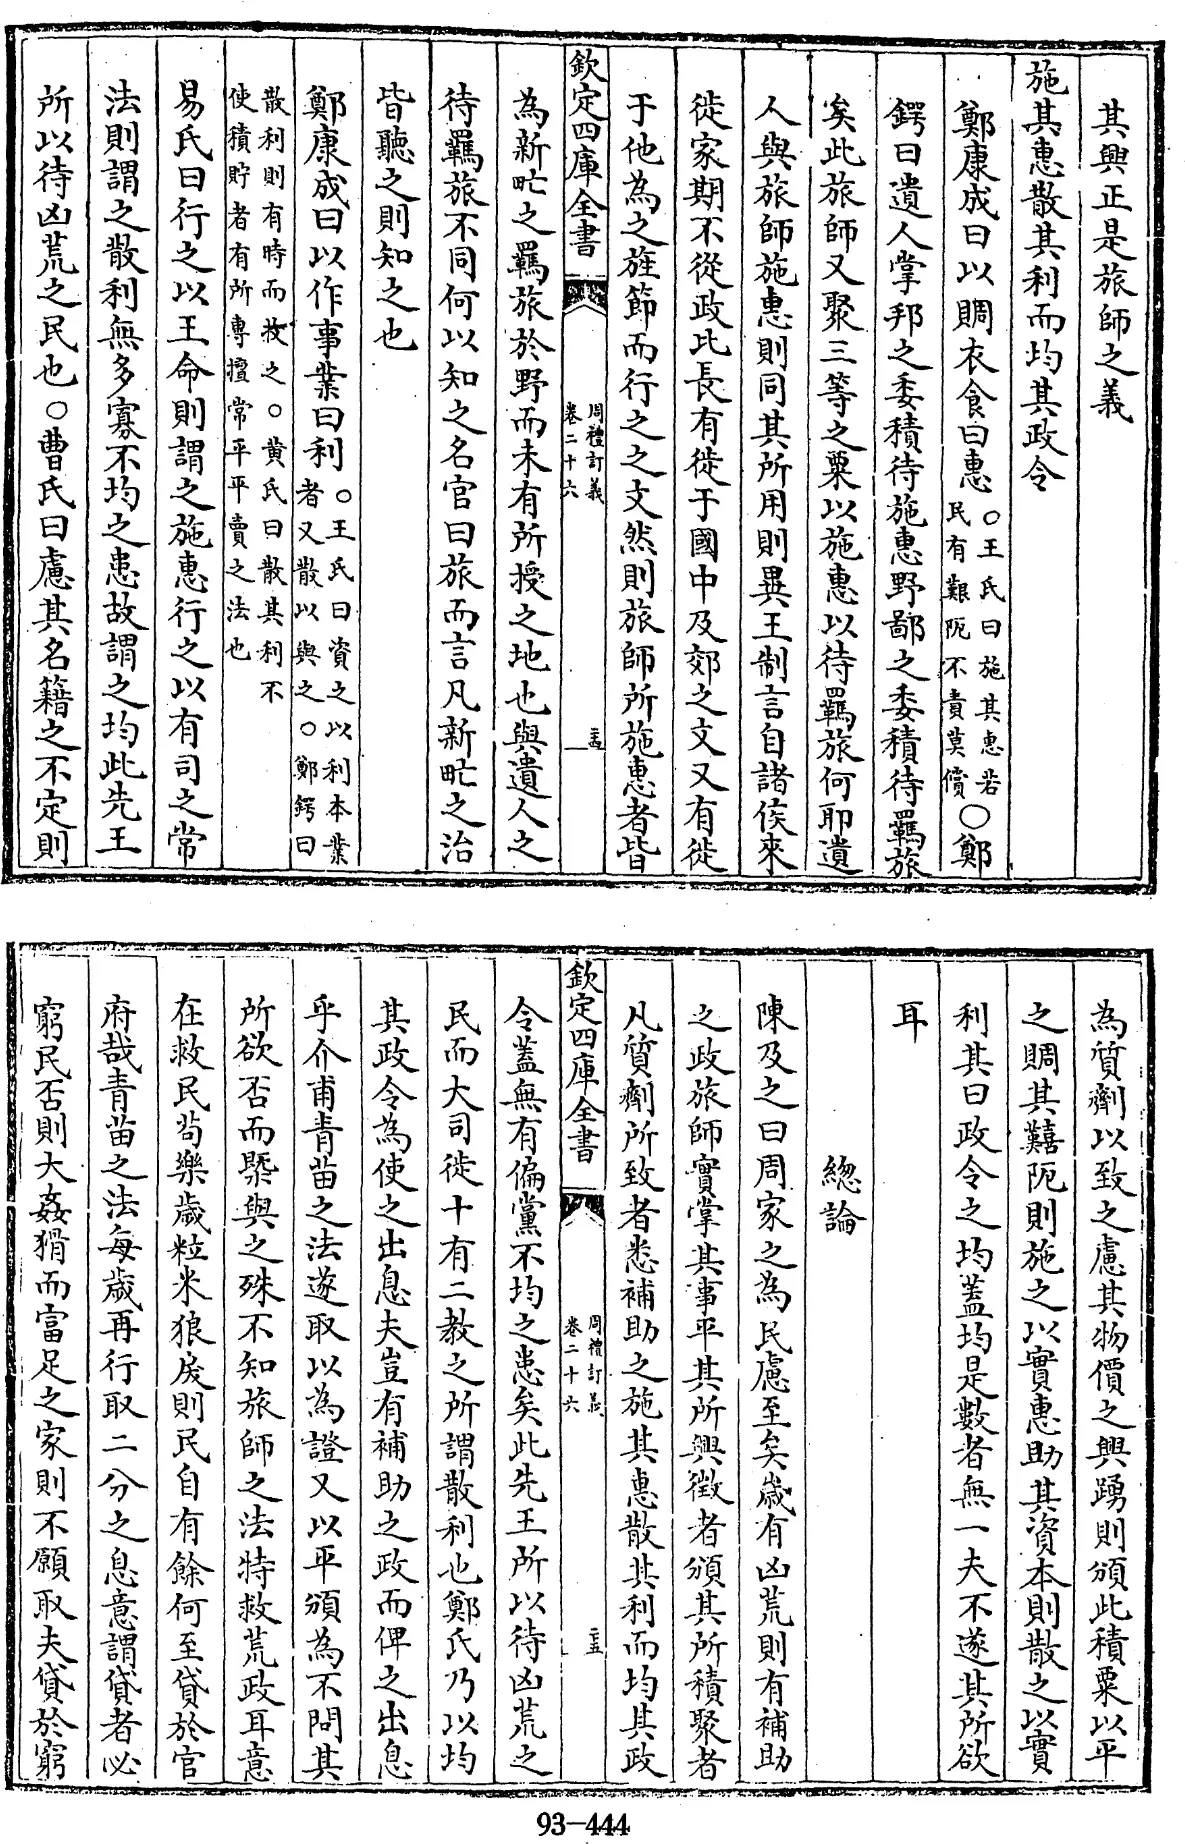 其興正是旅師之義
施其惠散其利而均其政令
鄭康成曰以賙衣食曰惠○王氏曰施其惠若民有艱阨不責莫償○鄭
鍔曰遺人掌邦之委積待施惠野鄙之委積待羈旅
矣此旅師又聚三等之粟以施惠以待羈旅何耶遺
人與旅師施惠則同其所用則異王制言自諸侯來
徙家期不從政比長有徙于國中及郊之文又有徙
于他為之旌節而行之之文然則旅師所施惠者皆
欽定四庫全書
周禮訂義
卷二十六
為新甿之羈旅於野而未有所授之地也與遺人之
待羈旅不同何以知之名官曰旅而言凡新甿之治
皆聽之則知之也
鄭康成曰以作事業曰利○王氏曰資之以利本業者又散以與之○鄭鍔曰
散利則有時而攽之○黄氏曰散其利不使積貯者有所專擅常平平賣之法也
易氏曰行之以王命則謂之施惠行之以有司之常
法則謂之散利無多寡不均之患故謂之均此先王
所以待凶荒之民也○曹氏曰慮其名籍之不定則
為質劑以致之慮其物價之興踴則頒此積粟以平
之賙其囏阨則施之以實惠助其資本則散之以實
利其曰政令之均蓋均是數者無一夫不遂其所欲
耳
緫論
陳及之曰周家之為民慮至矣歳有凶荒則有補助
之政旅師實掌其事平其所興徴者頒其所積聚者
凡質劑所致者悉補助之施其惠散其利而均其政
欽定四庫全書
周禮訂義
卷二十六
令蓋無有偏黨不均之患矣此先王所以待凶荒之
民而大司徒十有二教之所謂散利也鄭氏乃以均
其政令為使之出息夫豈有補助之政而俾之出息
乎介甫青苗之法遂取以為證又以平頒為不問其
所欲否而槩與之殊不知旅師之法特救荒政耳意
在救民茍樂歳粒米狼戾則民自有餘何至貸於官
府哉青苗之法每歳再行取二分之息意謂貸者必
窮民否則大姦猾而富足之家則不願取夫貸於窮
93-444